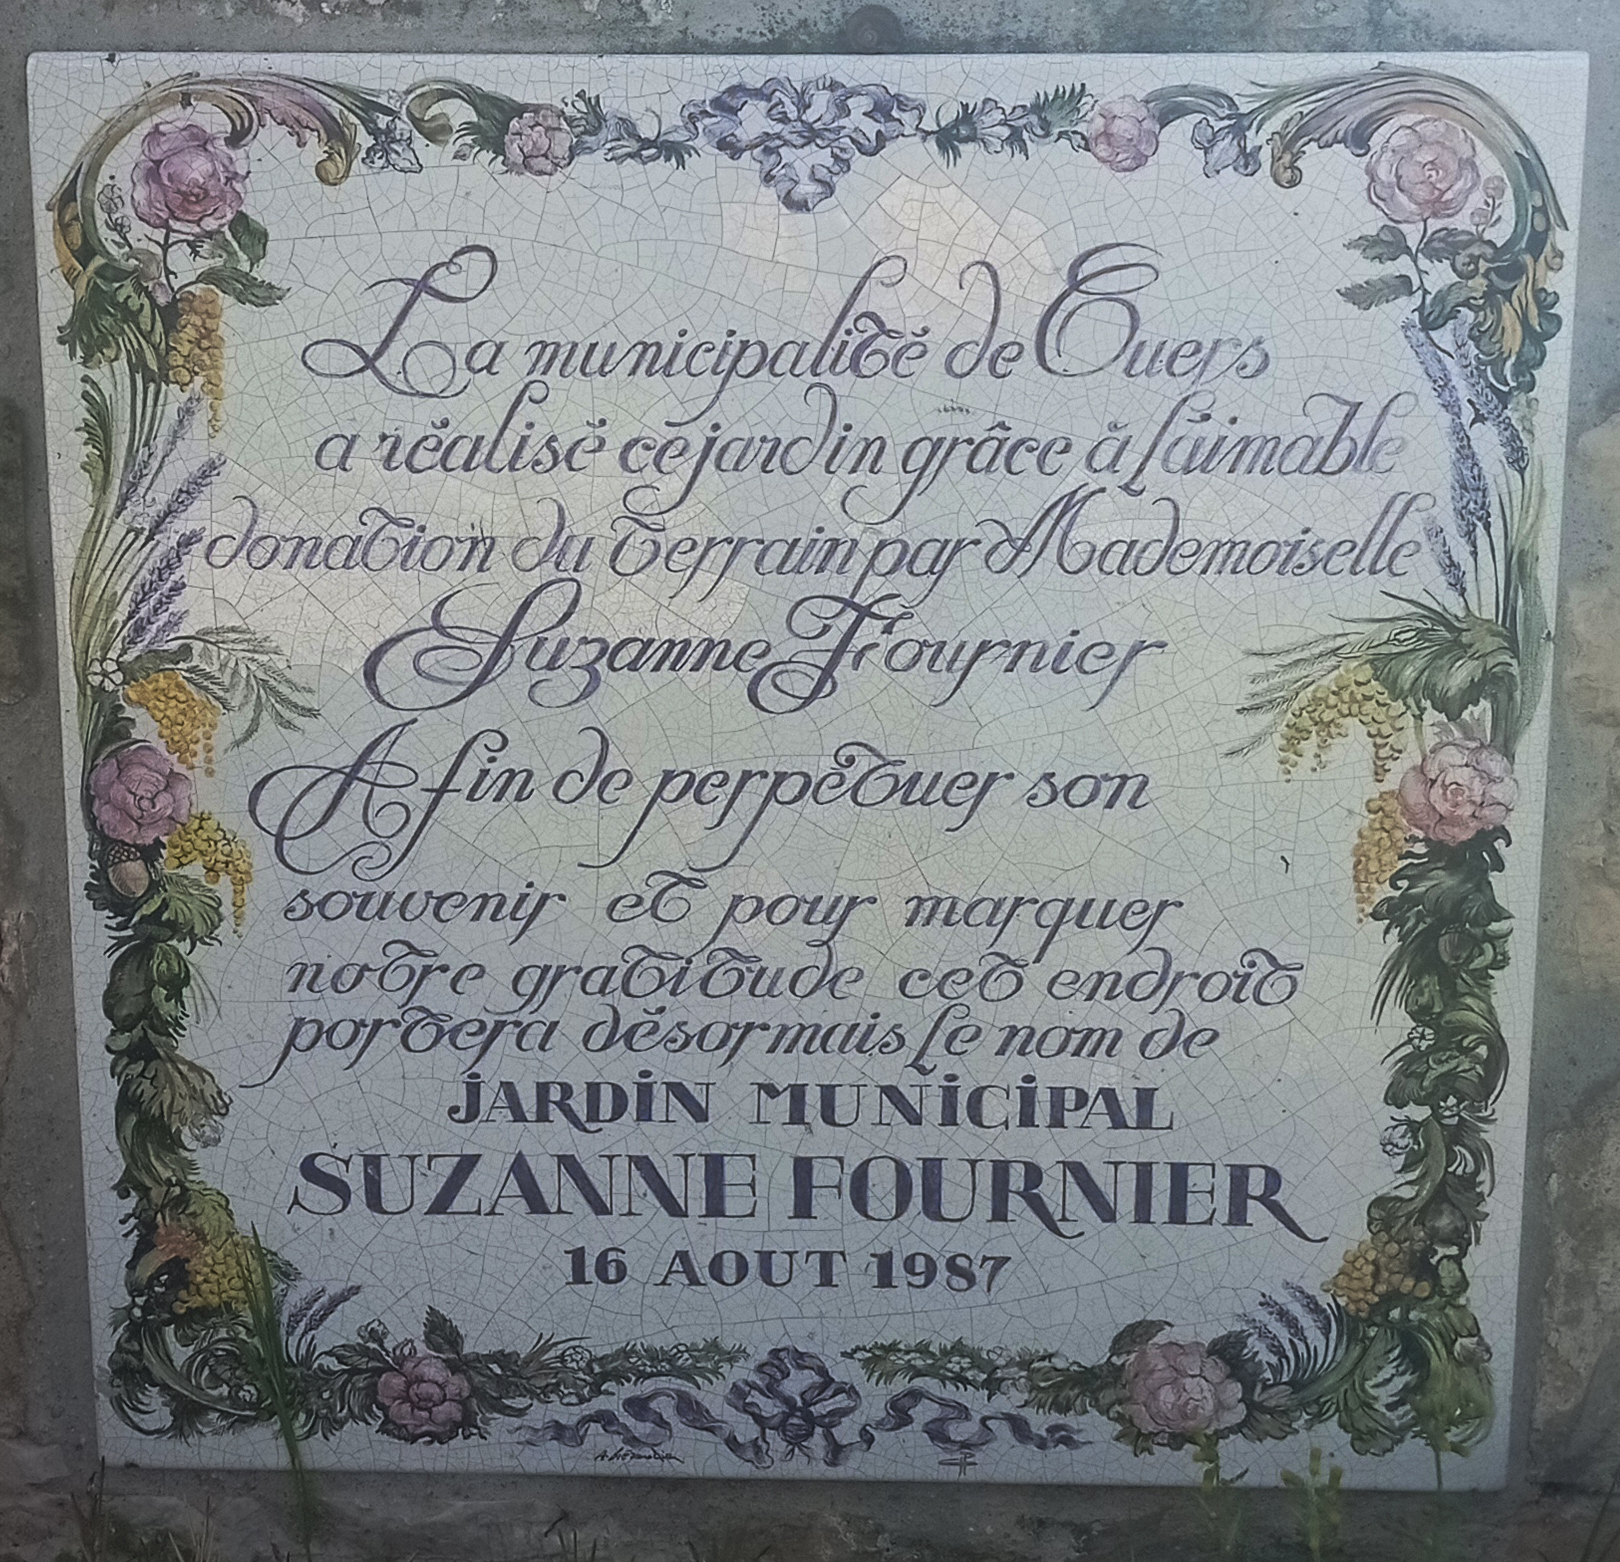 La municipalité de Cuers
a réalisé ce jardin grâce à l'aimable
donation du terrain par Mademoiselle
Suzanne Fournier
Afin de perpétuer son
souvenir et pour marquer
notre gratitude cet endroit
portera désormais le nom de
JARDIN MUNICIPAL
SUZANNE FOURNIER
16 AOUT 1987